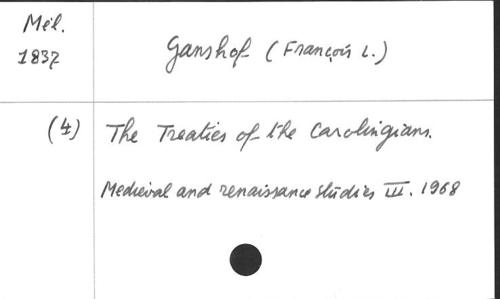 Mél.
1837
Ganshof (François L.)
(4) The Treaties of the Carolingians.
Medieval and renaissance studies III. 1968